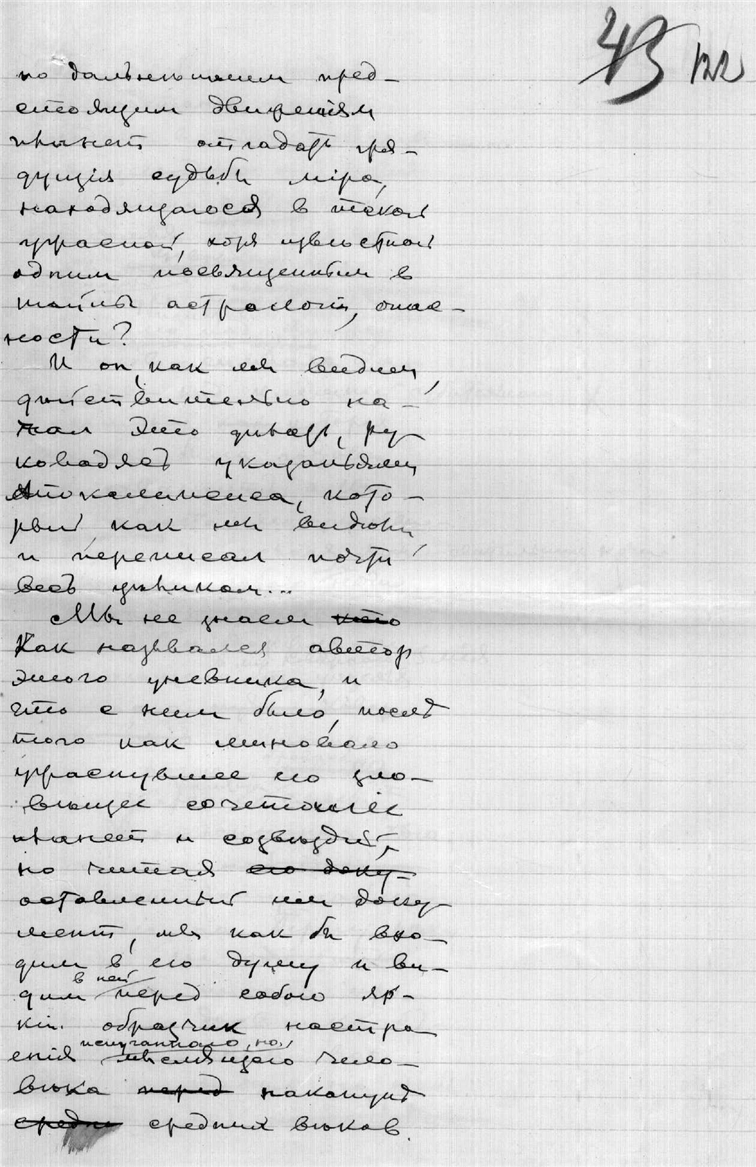 43 122
по дальнейшем пред-
стоящим движеніям
планет отгадать гря-
дущія судьбы міра,
находящагося в такой
ужасной, хотя извѣстной
одним посвященным в
тайны астрологіи, опас-
ности?
И он, как мы видим,
дѣйствительно на-
чал это дѣлать, ру-
ководясь указаньями
Апокалипсиса, кото-
рый как мы видѣли,
и переписал почти
весь цѣликом...
Мы не знаем кто
Как назывался автор
этого дневника, и
что с ним было, послѣ
того как миновало
ужаснувшее его зло-
вѣщее сочетаніе
планет и созвѣздій,-
но читая его доку-
оставленный им доку-
мент, мы как бы вхо-
дим в его душу и ви-
дим в ней перед собою яр-
кій образчик настро
енія испуганнаго, но мыслящаго чело-
вѣка перед наканунѣ
средни средних вѣков.